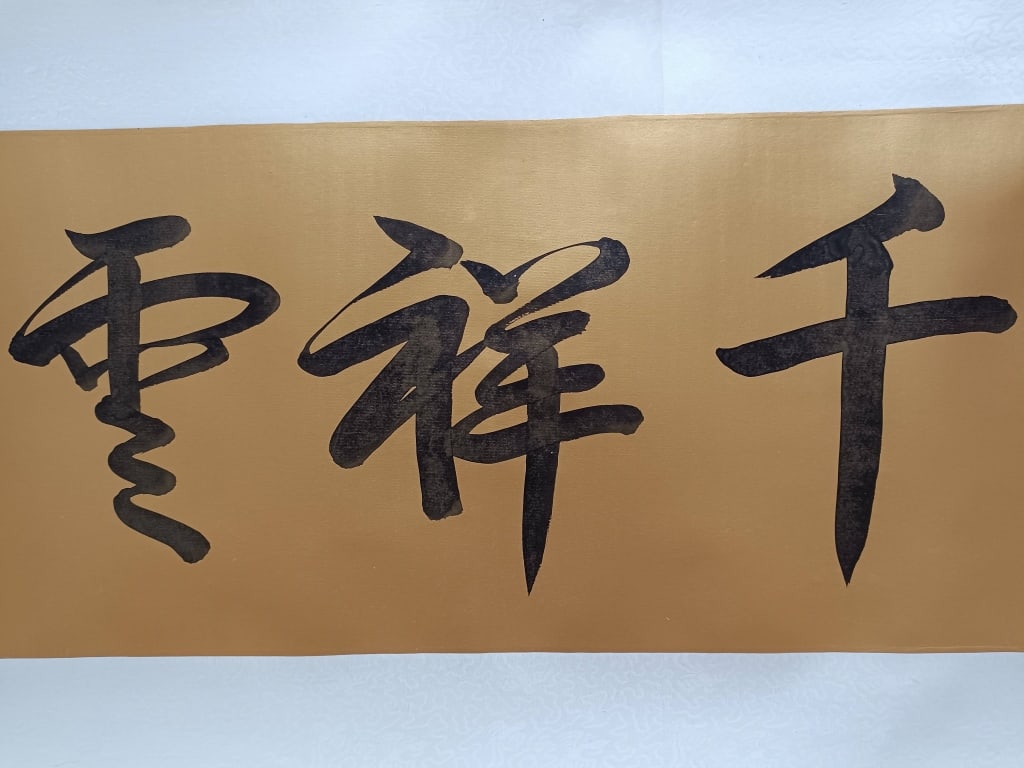 千祥雲